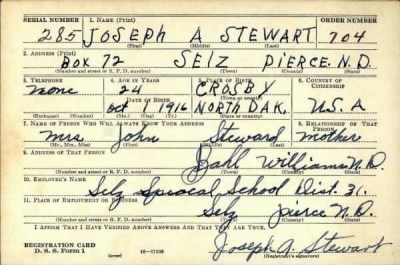 SERIAL NUMBER 1. NAME (Print) ORDER NUMBER
285 JOSEPH A STEWART 704
(First) (Middle) (Last)
2. ADDRESS (Print)
BOX 72 SELZ PIERCE. N.D.
(Number and street or R. F. D. number) (Town) (County) (State)
3. TELEPHONE 4. AGE IN YEARS 5. PLACE OF BIRTH 6. COUNTRY OF CITIZENSHIP
none 24 CROSBY
DATE OF BIRTH (Town or county)
Oct 1 1916 NORTH DAK. U.S.A
(Mo.) (Day) (Yr.) (State or country)
7. NAME OF PERSON WHO WILL ALWAYS KNOW YOUR ADDRESS 8. RELATIONSHIP OF THAT PERSON
Mrs John Steward mother
(Mr., Mrs., Miss) (First) (Middle) (Last)
9. ADDRESS OF THAT PERSON
Williams N.D.
(Number and street or R. F. D. number) (Town) (County) (State)
10. EMPLOYER'S NAME
Selz School Dist. 31.
11. PLACE OF EMPLOYMENT OR BUSINESS
Selz Pierce N.D.
(Number and street or R. F. D. number) (Town) (County) (State)
I AFFIRM THAT I HAVE VERIFIED ABOVE ANSWERS AND THAT THEY ARE TRUE.
REGISTRATION CARD
D. S. S. Form 1 (over) Joseph A. Stewart
(Registrant's signature)